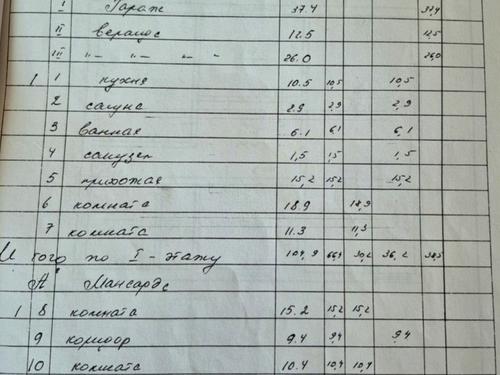 I Гараж 37.4 37,4
II веранда 12.5 12,5
III -"- -"- -"- 26.0 26,0
1 1 кухня 10.5 10,5 10,5
2 сауна 2.9 2,9 2,9
3 ванная 6.1 6,1 6,1
4 санузел 1,5 1,5 1,5
5 прихожая 15,2 15,2 15,2
6 комната 18.9 18,9
7 комната 11.3 11,3
Итого по I - этажу 30,2 36,2
А Мансарда
1 8 комната 15.2 15,2 15,2
9 коридор 9.4 9,4 9,4
10 комната 10.4 10,4 10,4